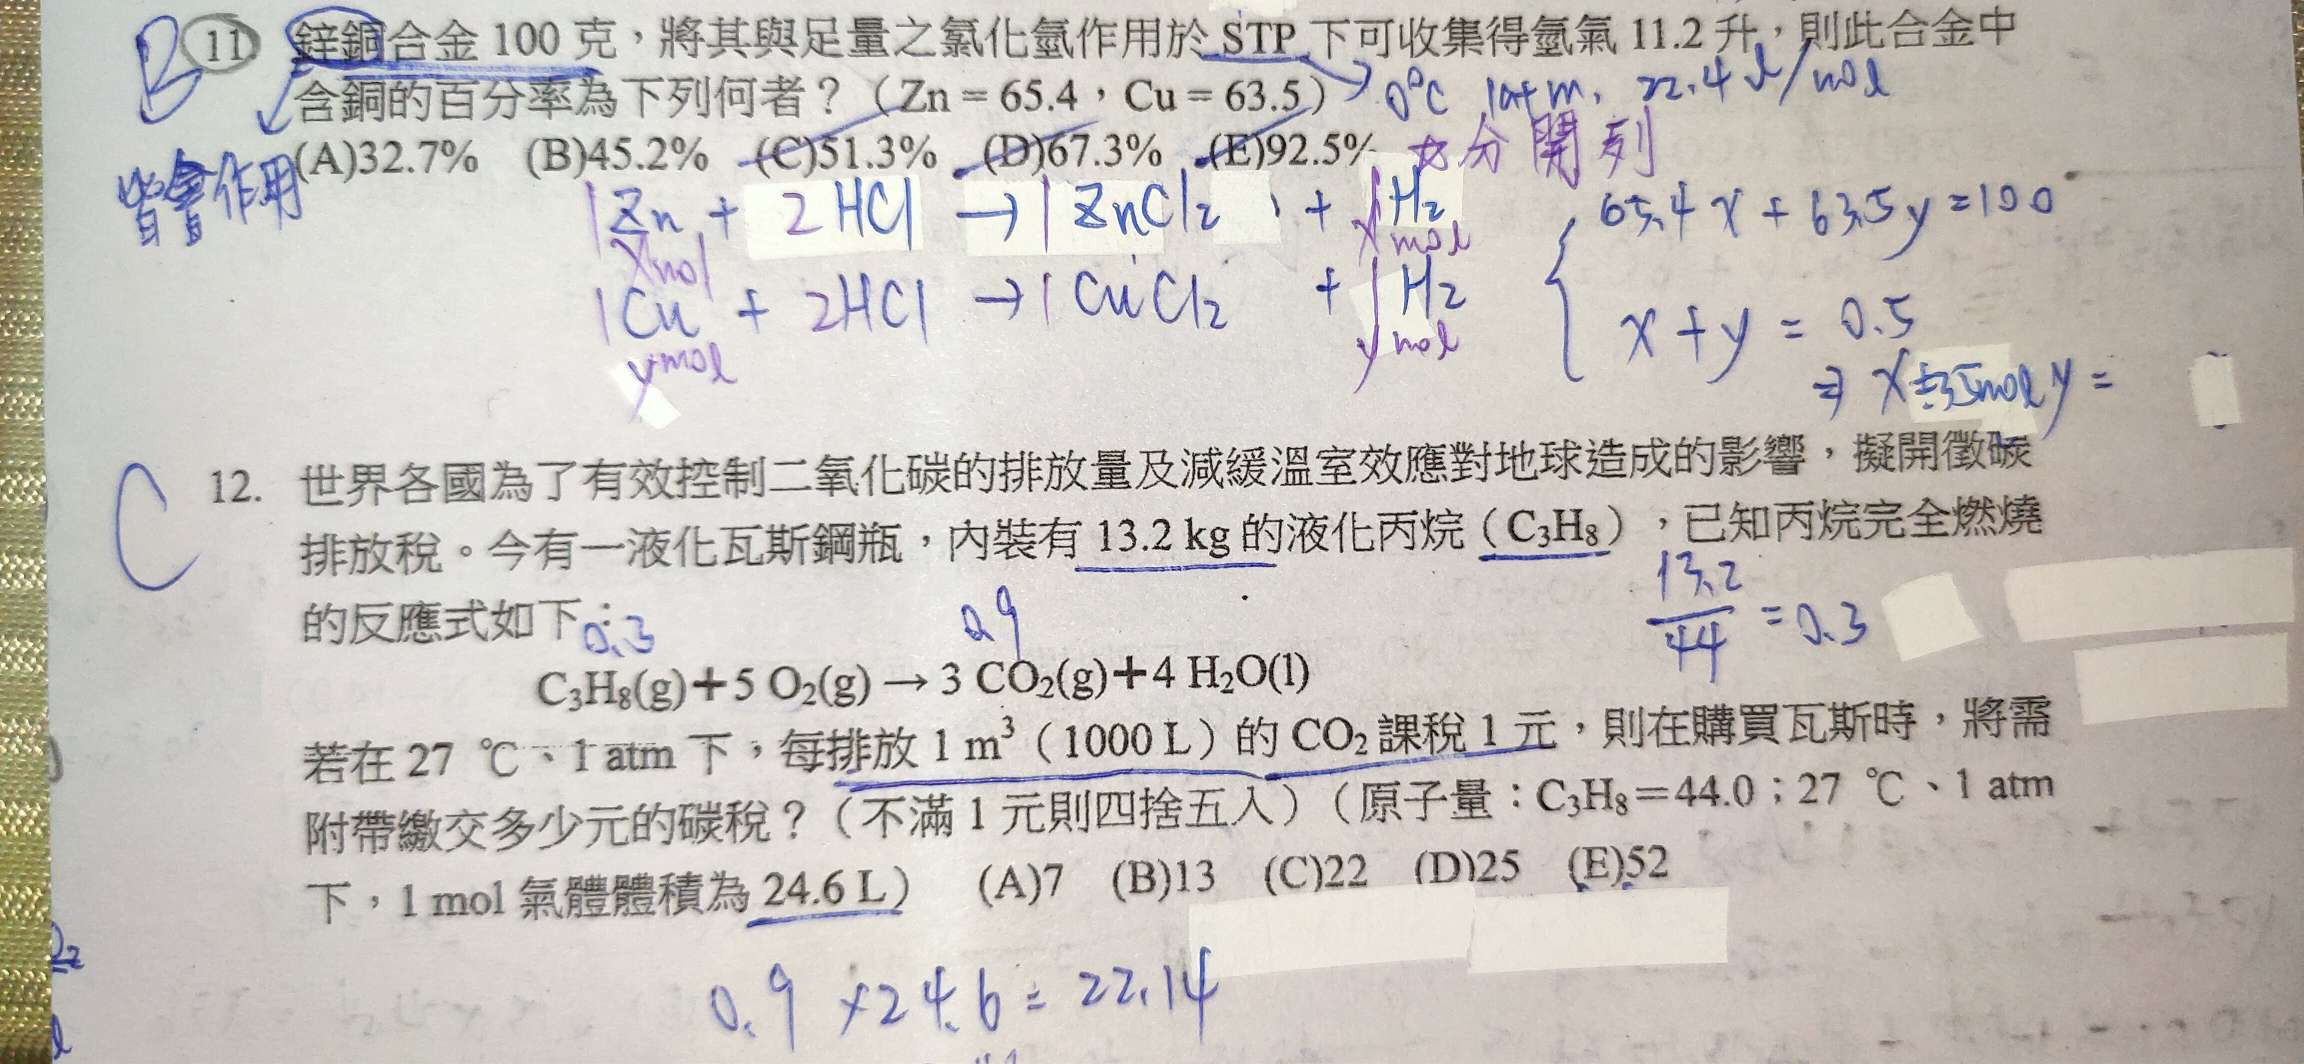 B 11 鋅銅合金 100 克，將其與足量之氯化氫作用於 STP 下可收集得氫氣 11.2 升，則此合金中
含銅的百分率為下列何者？（Zn = 65.4，Cu = 63.5） 0°C 1atm, 22.4 l/mol
(A)32.7% (B)45.2% (C)51.3% (D)67.3% (E)92.5% 分開列
皆會作用
1Zn + 2HCl → 1ZnCl2 + 1H2 65.4x + 63.5y = 100
xmol xmol
1Cu + 2HCl → 1CuCl2 + 1H2 x + y = 0.5
ymol ymol
⇒ x y =
C 12. 世界各國為了有效控制二氧化碳的排放量及減緩溫室效應對地球造成的影響，擬開徵碳
排放稅。今有一液化瓦斯鋼瓶，內裝有 13.2 kg 的液化丙烷（C₃H₈），已知丙烷完全燃燒
的反應式如下： 13.2/44 = 0.3
0.3 0.9
C₃H₈(g)+5 O₂(g)→3 CO₂(g)+4 H₂O(l)
若在 27 ℃、1 atm 下，每排放 1 m³（1000 L）的 CO₂ 課稅 1 元，則在購買瓦斯時，將需
附帶繳交多少元的碳稅？（不滿 1 元則四捨五入）（原子量：C₃H₈＝44.0；27 ℃、1 atm
下，1 mol 氣體體積為 24.6 L） (A)7 (B)13 (C)22 (D)25 (E)52
0.9 ×24.6 = 22.14